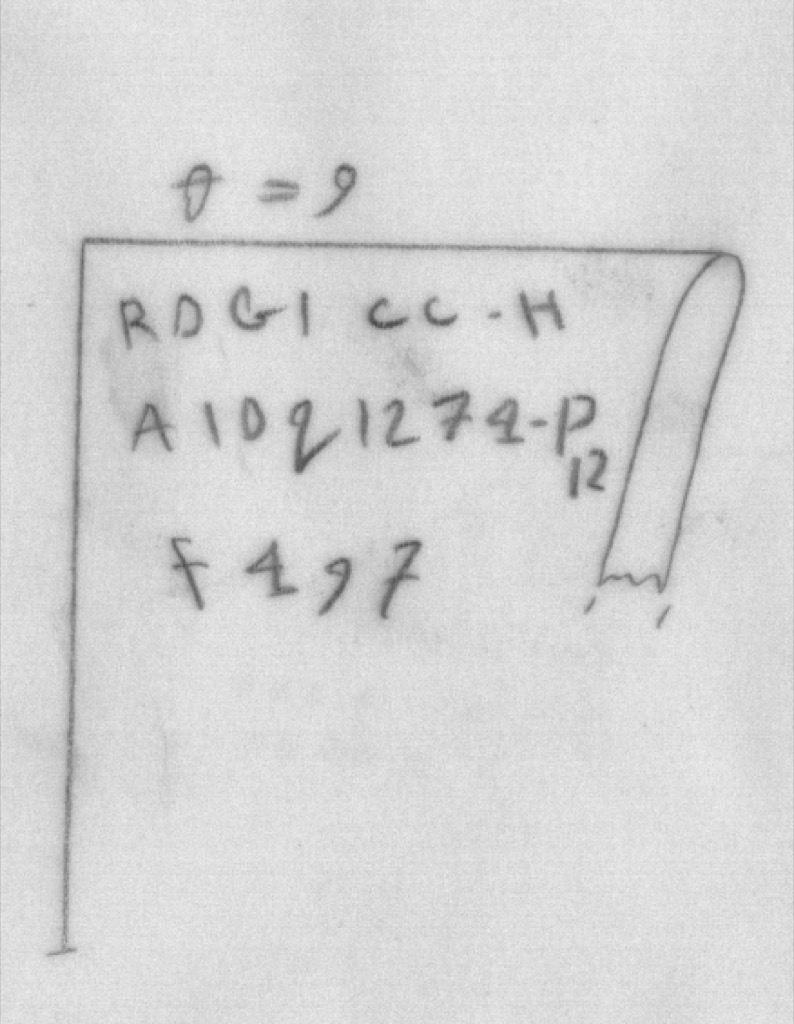 θ = 9
RDG1 CC-H
A1Dq1274-P12
F497